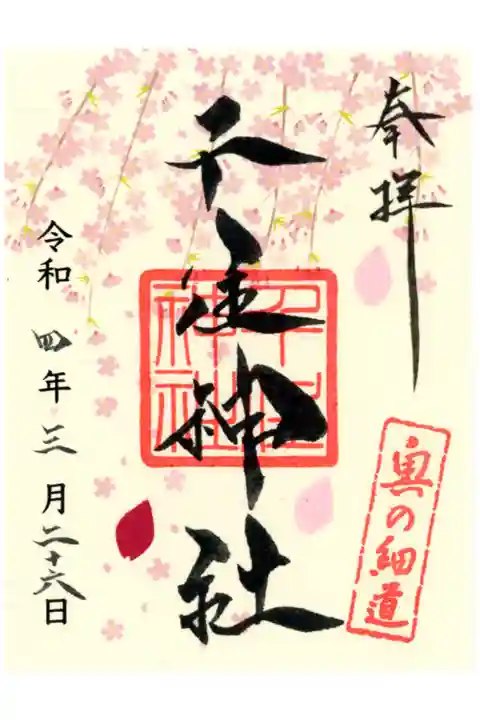 奉拝
千住神社
千住
神社
奥の細道
令和四年三月二十六日